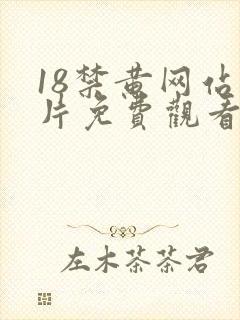 18禁黄网佔
片免費觀看
左木茶茶君